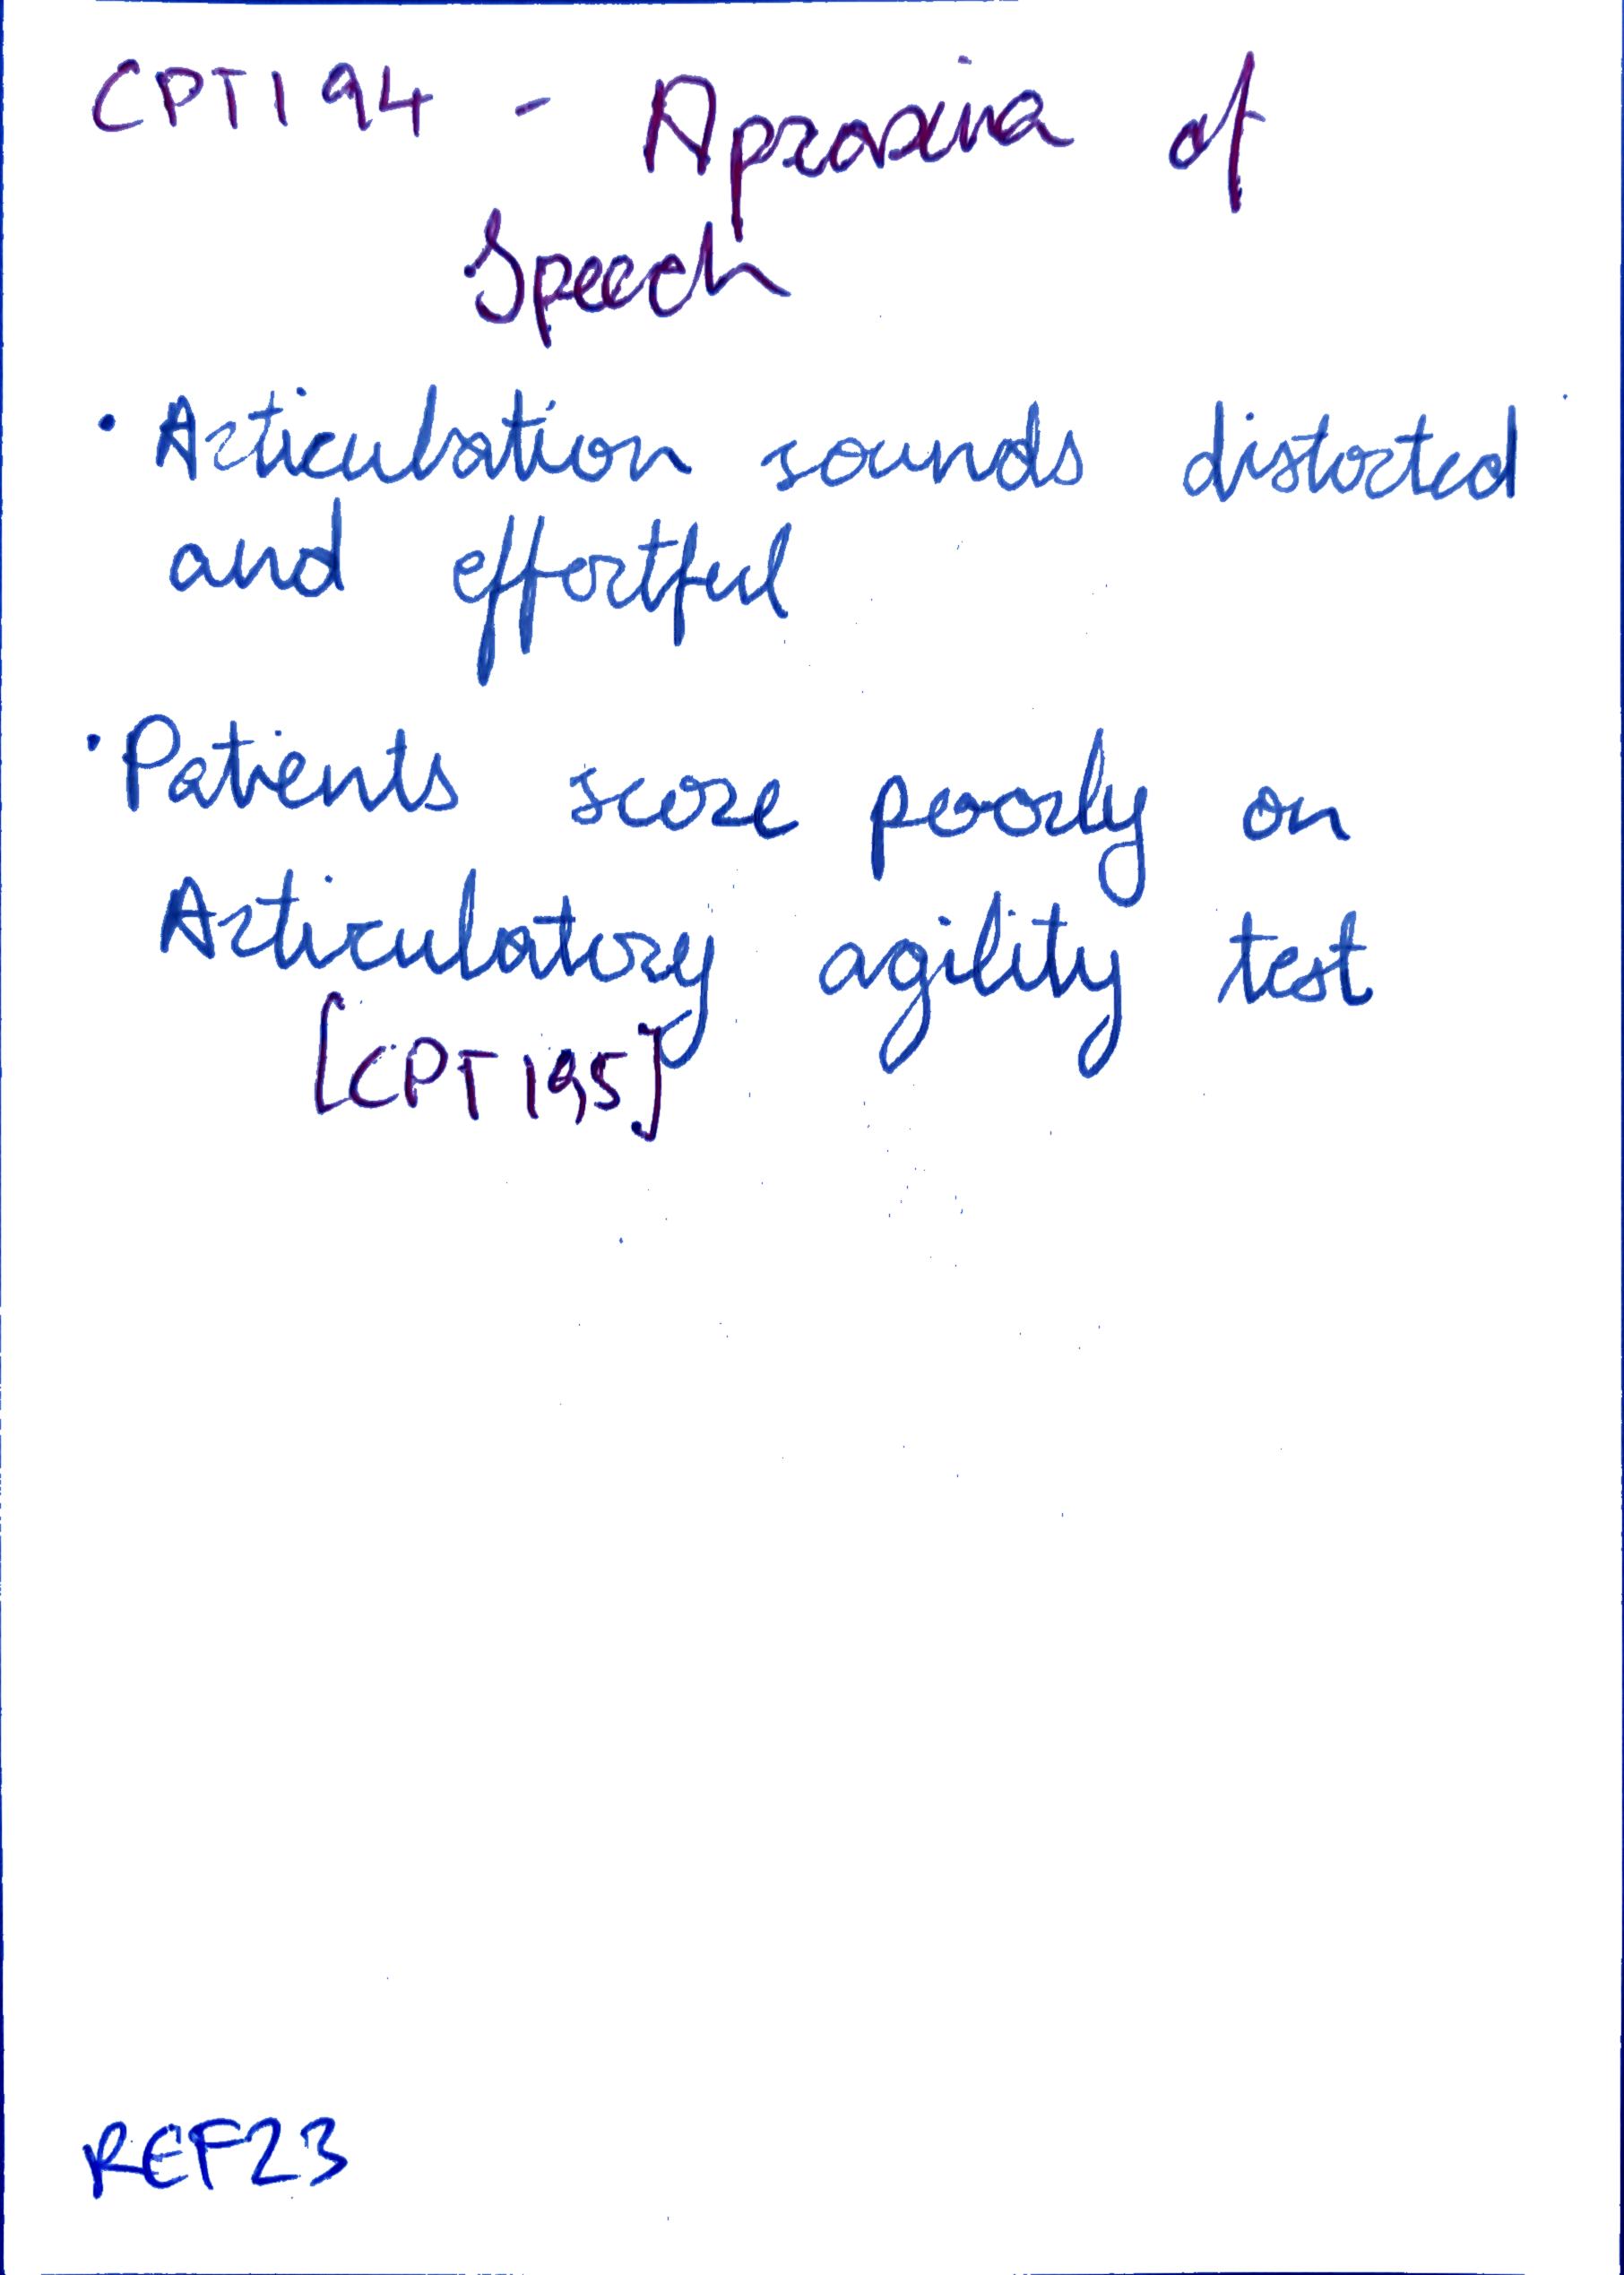 CPT194 - Apraxia of
Speech
• Articulation sounds distorted
and effortful
• Patients score poorly on
Articulatory agility test
[CPT195]
REF23